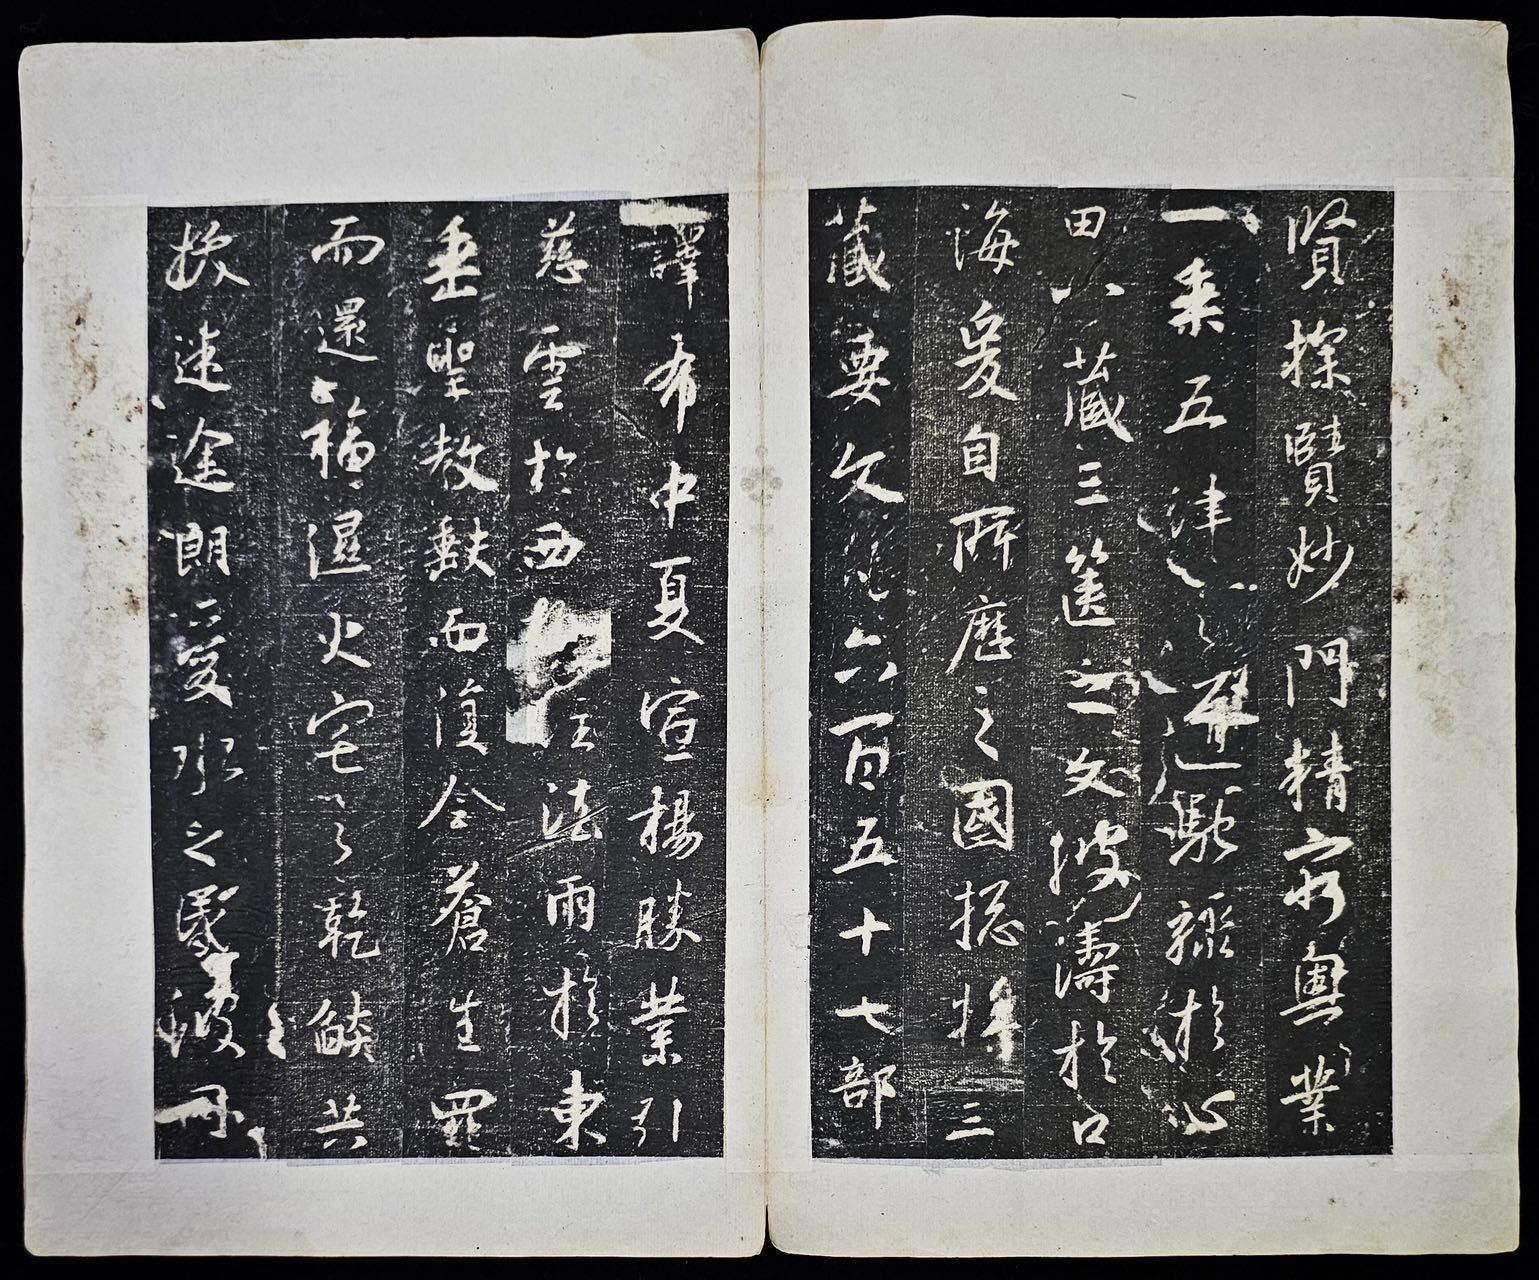 賢探賾妙門精窮奧業
一乘五津之道馳驟於心
田八藏三篋之文波濤於口
海爰自所歷之國總將三
藏要文凡六百五十七部
譯布中夏宣揚勝業引
慈雲於西極注法雨於東
垂聖教缺而復全蒼生罪
而還福濕火宅之乾焰共
拔迷途朗愛水之昏波同